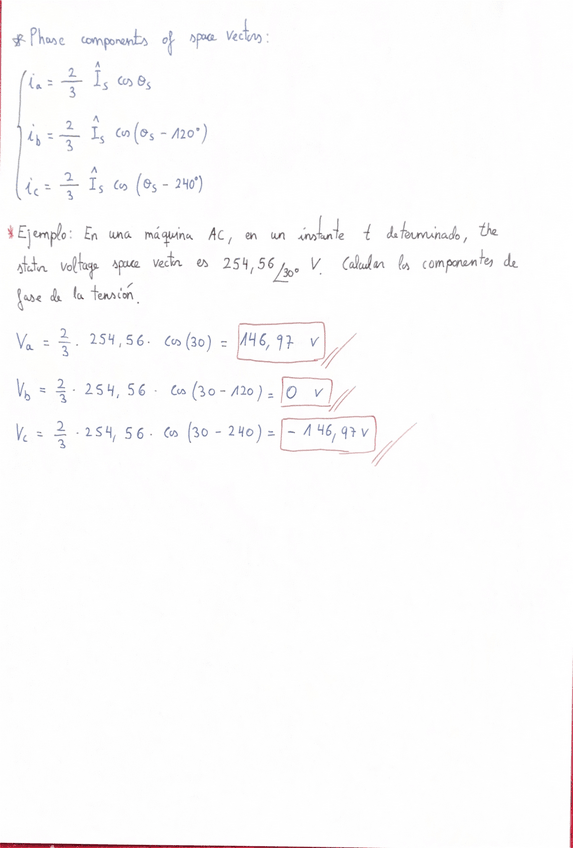 * Phase components of space vectors:
ia = 2/3 Îs cos θs
ib = 2/3 Îs cos (θs - 120°)
ic = 2/3 Îs cos (θs - 240°)
* Ejemplo: En una máquina AC, en un instante t determinado, the
stator voltage space vector es 254,56 /30° V. Calcular los componentes de
fase de la tensión.
Va = 2/3 · 254,56 · cos (30) = 146,97 V
Vb = 2/3 · 254,56 · cos (30 - 120) = 0 V
Vc = 2/3 · 254,56 · cos (30 - 240) = - 146,97 V